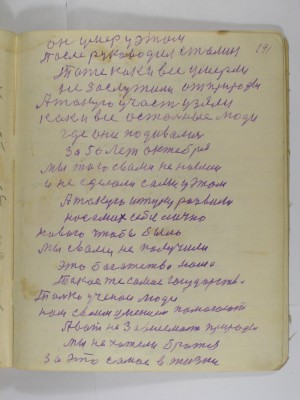 он умер у этом
191
После руководил сталин
Тоже как и все умерли
не заслужили от природы
А такую участь узяли
как и все остальные люди
где они подивались
За 50 лет октября
мы того с вами не нашли
и не сделали сами у этом
А такую штуку развили
на самих себе лично
нового чтобы было
мы с вами не получили
Это богатство наше
Такое то самое государство
Только ученые люди
нам своим умением помогают
А вот не Зависемость природы
мы не хотели братся
За это самое в жизни